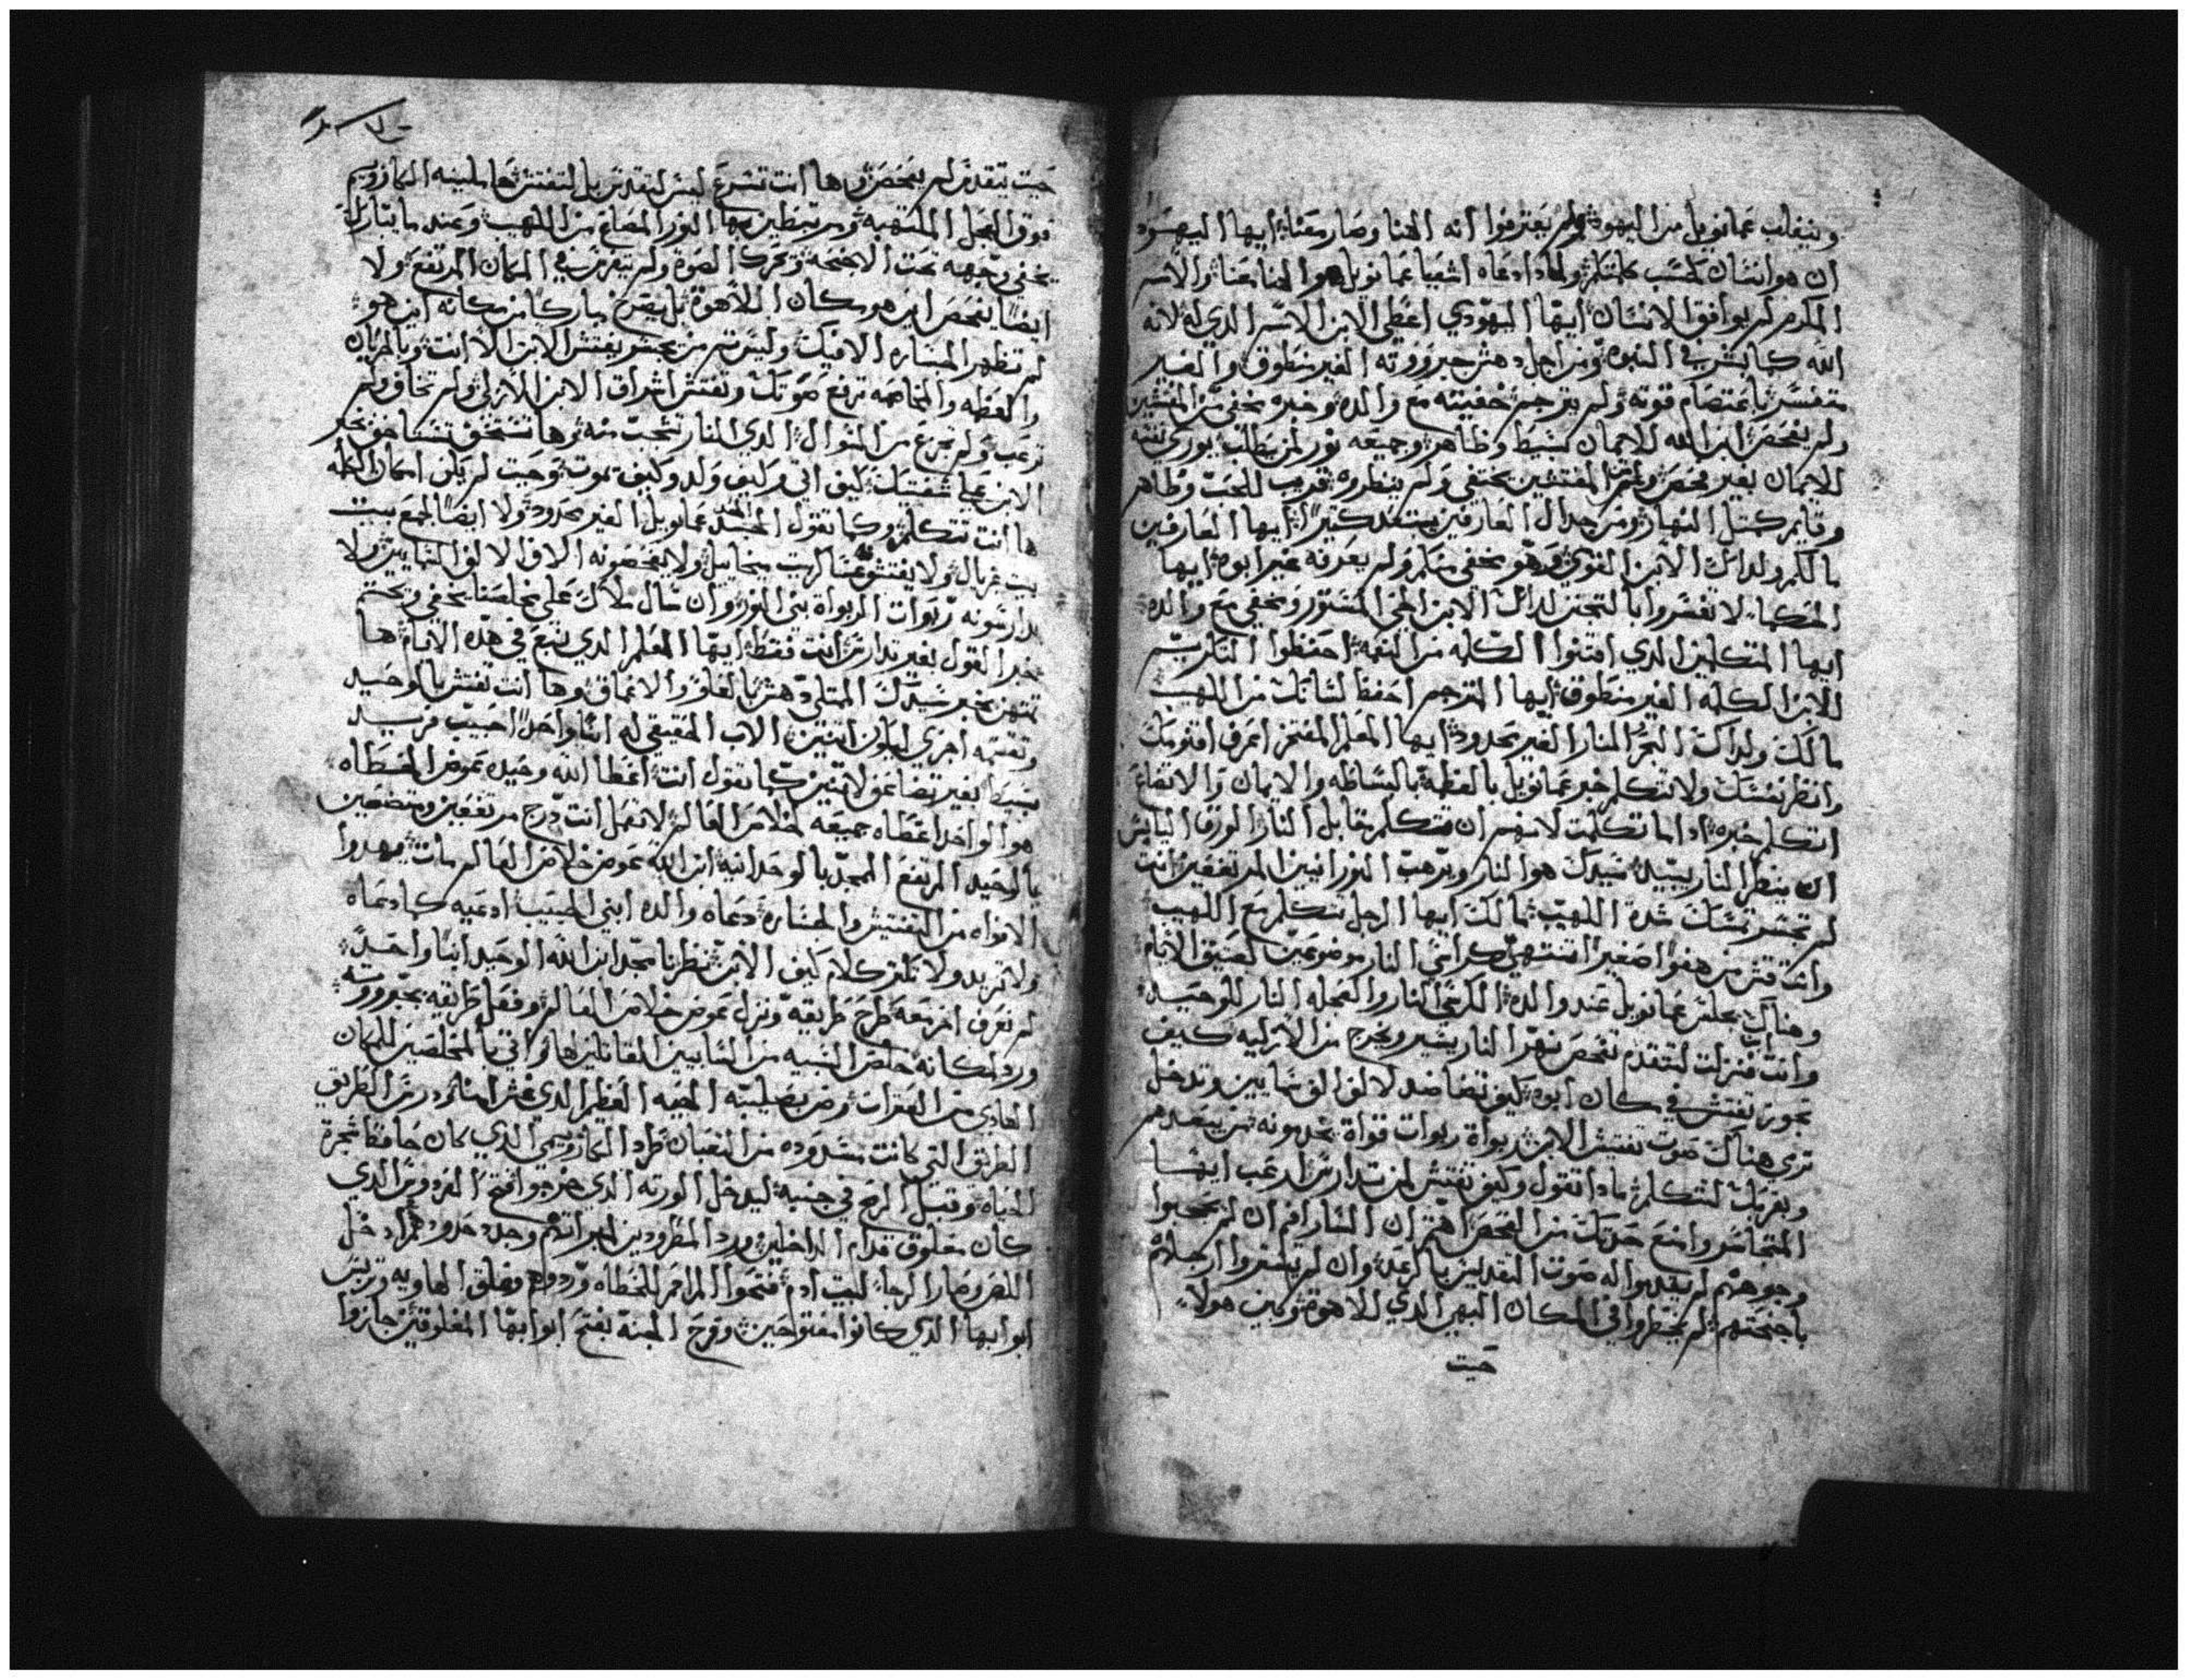 وينغلب عمانويل من اليهود ولم يعترفوا انه الهنا وصار معنا ايها اليهود
ان هو انسان كحسب كلمتكم ولماذا دعاه اشعيا عمانويل هو الهنا معنا والاسم
المكرم لم يوافق الانسان ايها اليهودي اعطي الابن الاسم الذي له لانه
الله كما بشر في النبوه ومن اجل دهش جبرووته الغير منطوق والغير
متفسر باعتصام قوته ولم يترجم خفيته مع والده وخبره مخفي من المفتشين
ولم يفحص ابن الله للايمان بسيط وظاهر وجميعه نور لمن يطلب يوري نفسه
للايمان بغير فحص ومن المفتشين يختفي ولم ينظروه قريب للمحب وظاهر
وقايم كمثل النهار ومن جدال العارفين يبتعد كثيرا ايها العارفين
ما لكم ولدالك الابن القوي وهو مخفي منكم ولم يعرفه غير ابوه ايها
الحكما لا تفسروا بالتجنن لدلك الابن الخفي المستور ومخفي مع والده
ايها المتكلمين الذي اقتنوا الكلمه من النعمه احفظوا التكريم
للابن الكلمه الغير منطوق ايها المترجم احفظ لسانك من اللهيب
مالك ولداك البحر النار الغير محدود ايها المعلم المفتخر اعرف اقنومك
وانظر نفسك ولا تتكلم خبر عمانويل بالعظمه بالبساطه والايمان والاتضاع
اتكلم خبره اذا ما تكلمت لانهم ان تتكلم مقابل النار الورق اليابس
ان ينظر النار يبيد سيدك هو النار ويرهب النورانيين المرتفعين انت
لم تجسر تمسك شدة اللهيب مالك ايها الرجل تتكلم مع اللهيب
وانت قش من هفوا صغير انتهي كراسي النار موضوعين لعتيق الايام
وهناك يجلس عمانويل عند والده الكرسي النار والعجله النار للوحيد
وانت انت قنزلت لتتقدم تفحص نهر النار يشير ويخرج من الازليه كيف
تجوز تفتش في مكان ابوه كيف تضاضد لالوف الوف سمايين وتدخل
تري هناك صوت تفتش الابن ربواة ربوات قواة يخدمونه من يبعدهم
ويقربك لتتكلم ماذا تقول وكيف تفتش لمن تدارس ارعب ايها
المتجاسر وامنع حدتك من الفحص افهم ان السارافيم ان لم يحجبوا
وجوههم لم يقدموا له صوت التقديس بالرعد وان لم يستروا ارجلهم
باجنحتهم لم يخطروا في المكان البهي الذي للاهوته وبين هولا
حيت
حيت تتقدم لم يفحص وها انت تسرع ليس لتقدس بل لتفتش ها سلسله الكاروبيم
فوق العجل الملتهبه ومرتبطين بها النور المصاغ من اللهيب وعند ما يتبارك
يخفي وجهه تحت الاجنحه وتحرك الصوة ولم يتفرس في المكان المرتفع ولا
ايضا يفحص اين هو مكان اللاهوة بل يصرخ مباركا من مكانه اين هو
لم تظهر المساره الا فيك وليس من يجسر يفتش الابن الا انت وبالهديان
والعظمه والمخاصمه ترفع صوتك وتفتش اشراق الابن الازلي ولم تخاف ولم
ترعب ولم تجزع من السوال الذي للنار تتحجب منه وها تستنشق نسناخه بخبر
الابن علي شفتيك كيف اتي وكيف ولد وكيف يموت وحيت لم يكن امكان الكلمه
ها انت تتكلم وكما تقول المجسد عمانويل الغير محدود ولا ايضا لجمع بيت
بيت غبريال ولا يفتشونه عساكر بيت ميخاييل ولا يفحصونه الاف الالوف السمايين ولا
يدارسونه ربوات الربواة بني النور وان سال ملاك علي مخلصنا يخفي ويختم
خبر القول بغير تدارس انت فقط ايها المعلم الذي نبع في هذه الايام ها
تمتهن بخبر سيدك الممتلي دهش بالعلو والاعماق وها انت تفتش بالوحيد
وتقسمه اجزي ليكون اتنين الاب الحقيقي له ابنا واحدا حبيب فريد
بسيط بغير تضاعف لاتنين كما تقول انت اعطا الله وحيده عوض الخطاه
هو الواحد اعطاه جميعه لخلاص العالم لا تعمل انت درج مرتفعين ومتضعين
بالوحيد المرتفع الممجد بالوحدانيه ابن الله عوض خلاص العالم مات فيهدوا
الافواه من التفتيش والخساره دعاه والده ابني الحبيب ادعيه كما دعاه
ولا تزيد ولا تكتر كلام كيف الابن نظرنا تجد ابن الله الوحيد ابنا واحدا
لم نعرف اخر معه طرح طريقه ونزل عوض خلاص العالم وفعل طريقه بجبرووته
ورد لمكانه خلص السبيه من السابيين القاتلين ها واتي بالمخلصين للمكان
العادي من العثرات وض بصليبه الحيه العظم الذي غش امنا ودرس الطريق
الطريق التي كانت مسدوده من الثعبان طرد الكاروبيم الذي كان حافظ شجرة
الحياه وقبل الرمح في جنبه ليدخل الورثه الذي خرجوا فتح الفردوس الذي
كان مغلوق قدام الداخلين ورد المطرودين لميراثهم وجدد حدودهم ادخل
اللص وصار الرجا لبيت ادم فتحوا المراحم للخطاه وردوهم وغلق الهاويه وتربس
ابوابها الذي كانوا مفتوحين وفرح الجنه بفتح ابوابها المغلوقين جازوا